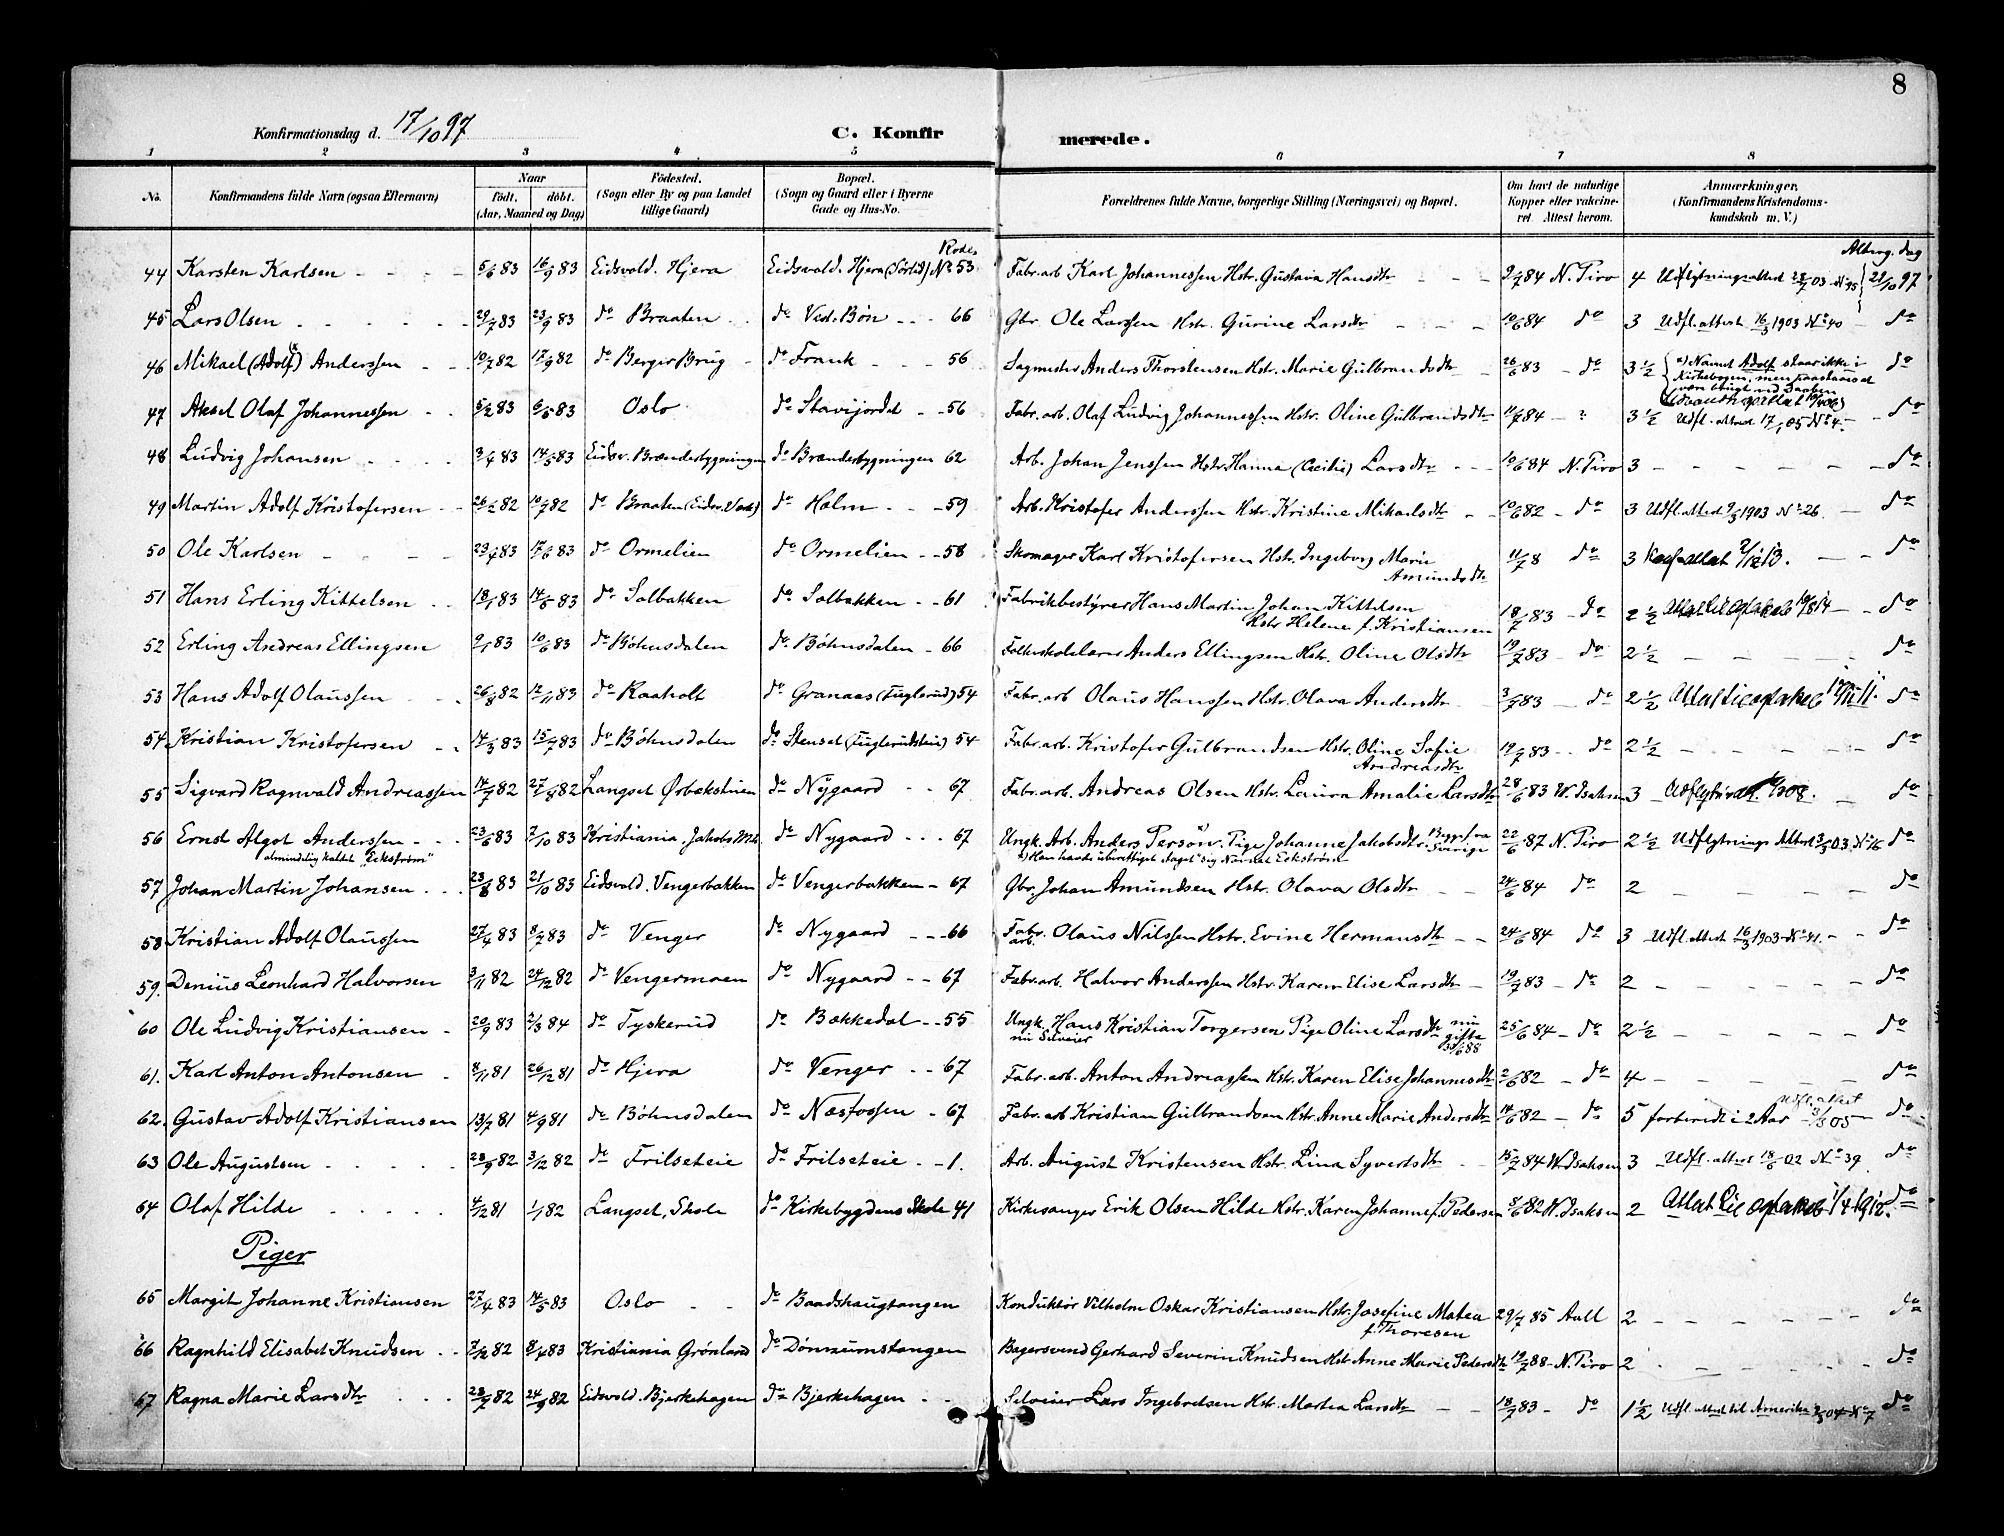 8
Konfirmationsdag d. 17/10 97 C. Konfirmerede.
1 2 3 4 5 6 7 8
No. Konfirmandens fulde Navn (ogsaa Efternavn) Naar født. døbt. (Aar, Maaned og Dag) Fødested. (Sogn eller By og paa Landet tillige Gaard) Bopæl. (Sogn og Gaard eller i Byerne Gade og Hus-No. Forældrenes fulde Navne, borgerlige Stilling (Næringsvei) og Bopæl. Om havt de naturlige Kopper eller vakcineret. Attest herom. Anmærkninger, (Konfirmandens Kristendomskundskab m. V.)
Rode Altierg. dag
44 Karsten Karlsen 5/6 83 16/9 83 Eidsvold. Hjera Eidsvold. Hjera (Sørlid) No 53 Fabr. arb Karl Johannessen Hstr. Gustava Hansdtr 9/7 84 N. Tiro 4 Udflytningsattest 03 22/10 97
45 Lars Olsen 29/7 83 23/9 83 do Braaten do Vid. Bøn 66 Gbr. Ole Larssen Hstr. Gurine Larsdtr 10/6 84 do 3 Udfl. attest 16/3 1903 No 40 do
46 Mikael (Adolf x) Anderssen 10/7 82 17/9 82 do Berger Brug do Frank 56 Sagmester Anders Thorstensen Hstr. Marie Gulbrandsdtr 26/6 83 do 3 1/2 x) Navnet Adolf staar ikke i Kirkebogen, men paastaaes at være brugt ved Daaben do
47 Aksel Olaf Johannessen 5/2 83 6/5 83 Oslo do Stavijordet 56 Fabr. arb. Olaf Ludvig Johannessen Hstr. Oline Gulbrandsdtr 11/7 84 " 3 1/2 Udfl. attest 17/1 05 No 4 do
48 Ludvig Johansen 3/4 83 14/5 83 Eidsv. Brænderbygningen do Brænderbygningen 62 Arb. Johan Jenssen Hstr. Hanna (Cecilie) Larsdtr 10/6 84 N. Tiro 3 do
49 Martin Adolf Kristofersen 26/2 82 10/7 82 do Braaten (Eidsv. Værk) do Holm 59 Arb. Kristofer Anderssen Hstr. Kristine Mikaelsdtr 10/6 82 do 3 Udfl. attest 9/3 1903 No 26 do
50 Ole Karlsen 23/4 83 17/6 83 do Ormelien do Ormelien 58 Skomager Karl Kristofersen Hstr. Ingeborg Marie Amundsdtr 11/7 8 do 3 do
51 Hans Erling Kittelsen 18/1 83 14/5 83 do Solbakken do Solbakken 61 Fabrikbestyrer Hans Martin Johan Kittelsen Hstr Helene f. Kristiansen 18/7 83 do 2 1/2 Attest til Opakeb do
52 Erling Andreas Ellingsen 9/1 83 10/6 83 do Bøhnsdalen do Bøhnsdalen 66 Folkeskolelærer Anders Ellingsen Hstr. Oline Olsdtr 19/7 83 do 2 1/2 do
53 Hans Adolf Olaussen 26/8 82 12/11 83 do Raaholt do Granaas (Fuglerud) 54 Fabr. arb Olaus Hanssen Hstr. Olava Andersdtr 3/7 83 do 2 1/2 do
54 Kristian Kristofersen 14/3 83 15/7 83 do Bøhnsdalen do Stenset (Fuglerudsteiu) 54 Fabr. arb. Kristofer Gulbrandsen Hstr. Oline Sofie Andreasdtr 19/7 83 do 2 1/2 do
55 Sigvard Ragnvald Andreassen 14/7 82 27/8 82 Langset Ørbækstuen do Nygaard 67 Fabr. arb. Andreas Olsen Hstr. Laura Amalie Larsdtr 28/6 83 W. Isaksen 3 do
56 Ernst Algot Anderssen almindelig kaldet "Eckstrøm" 23/6 83 7/10 83 Kristiania. Jakobs Mh. do Nygaard 67 Ungk. Arb. Anders Persøn. Pige Johanne Jakobsdtr. Begge fra Sverige 22/6 87 N. Tiro 2 1/2 Udflytnings Attest 3/3 03 No 16 do
x) Han havde uberettiget taget sig Navnet Eckstrøm
57 Johan Martin Johansen 23/8 83 21/10 83 Eidsvold. Vengerbakken do Vengerbakken 67 Gbr. Johan Amundsen Hstr. Olava Olsdtr 24/6 84 do 2 do
58 Kristian Adolf Olaussen 27/4 83 8/7 83 do Venger do Nygaard 66 Fabr. arb. Olaus Nilssen Hstr. Evine Hermansdtr 24/6 84 do 3 Udfl. attest 16/3 1903 No 41 do
59. Denius Leonhard Halvorsen 3/11 82 24/12 82 do Vengermoen do Nygaard 67 Fabr. arb. Halvor Anderssen Hstr. Karen Elise Larsdtr 19/7 83 do 2 do
60 Ole Ludvig Kristiansen 20/9 83 2/3 84 do Tyskerud do Bakkedal 55 Ungk. Hans Kristian Torgersen Pige Oline Larsdtr nu gifte 30/6 88 nu Selveier 25/6 84 do 2 1/2 do
61. Karl Anton Antonsen 8/11 81 26/12 81 do Hjera do Venger 67 Fabr. arb. Anton Andreassen Hstr. Karen Elise Johannesdtr 2/6 82 do 4 do
62. Gustav Adolf Kristiansen 13/7 81 4/9 81 do Bøhnsdalen do Næsfossen 67 Fabr. arb Kristian Gulbrandsen Hstr. Anne Marie Andersdtr 14/6 82 do 5 forberedt i 2 Aar Udfl. attest 3/3 05 do
63 Ole Augustsen 23/9 82 3/12 82 do Frilseteie do Frilseteie 1. Arb. August Kristensen Hstr. Lina Syverdsdtr 15/7 84 W. Isaksen 3 Udfl. attest 18/6 02 No 39 do
64 Olaf Hilde 4/12 81 1/1 82 Langset, Skole do Kirkebygdens Skole 41 Kirkesanger Erik Olsen Hilde Hstr. Karen Johanne f. Pedersen 8/6 82 W. Isaksen 2 Attest til Opakeb 1/4 1912. do
Piger
65 Margit Johanne Kristiansen 27/4 83 14/5 83 Oslo do Baadshaugtangen Konduktør Vilhelm Oskar Kristiansen Hstr. Josefine Matea f. Thoresen 29/7 85 Aall 2 do
66 Ragnhild Elisabet Knudsen 7/12 82 8/4 83 Kristiania Grønland do Dønnumstangen Bagersvend Gerhard Severin Knudsen Hstr Anne Marie Pedersdtr 19/7 88 N. Tiro 2 do
67 Ragna Marie Larsdtr 23/7 82 24/9 82 Eidsvold. Bjerkehagen do Bjerkehagen Selveier Lars Ingebretsen Hstr. Martea Larsdtr 18/7 83 do 1 1/2 Udfl. attest til Amerika 04 No 7 do